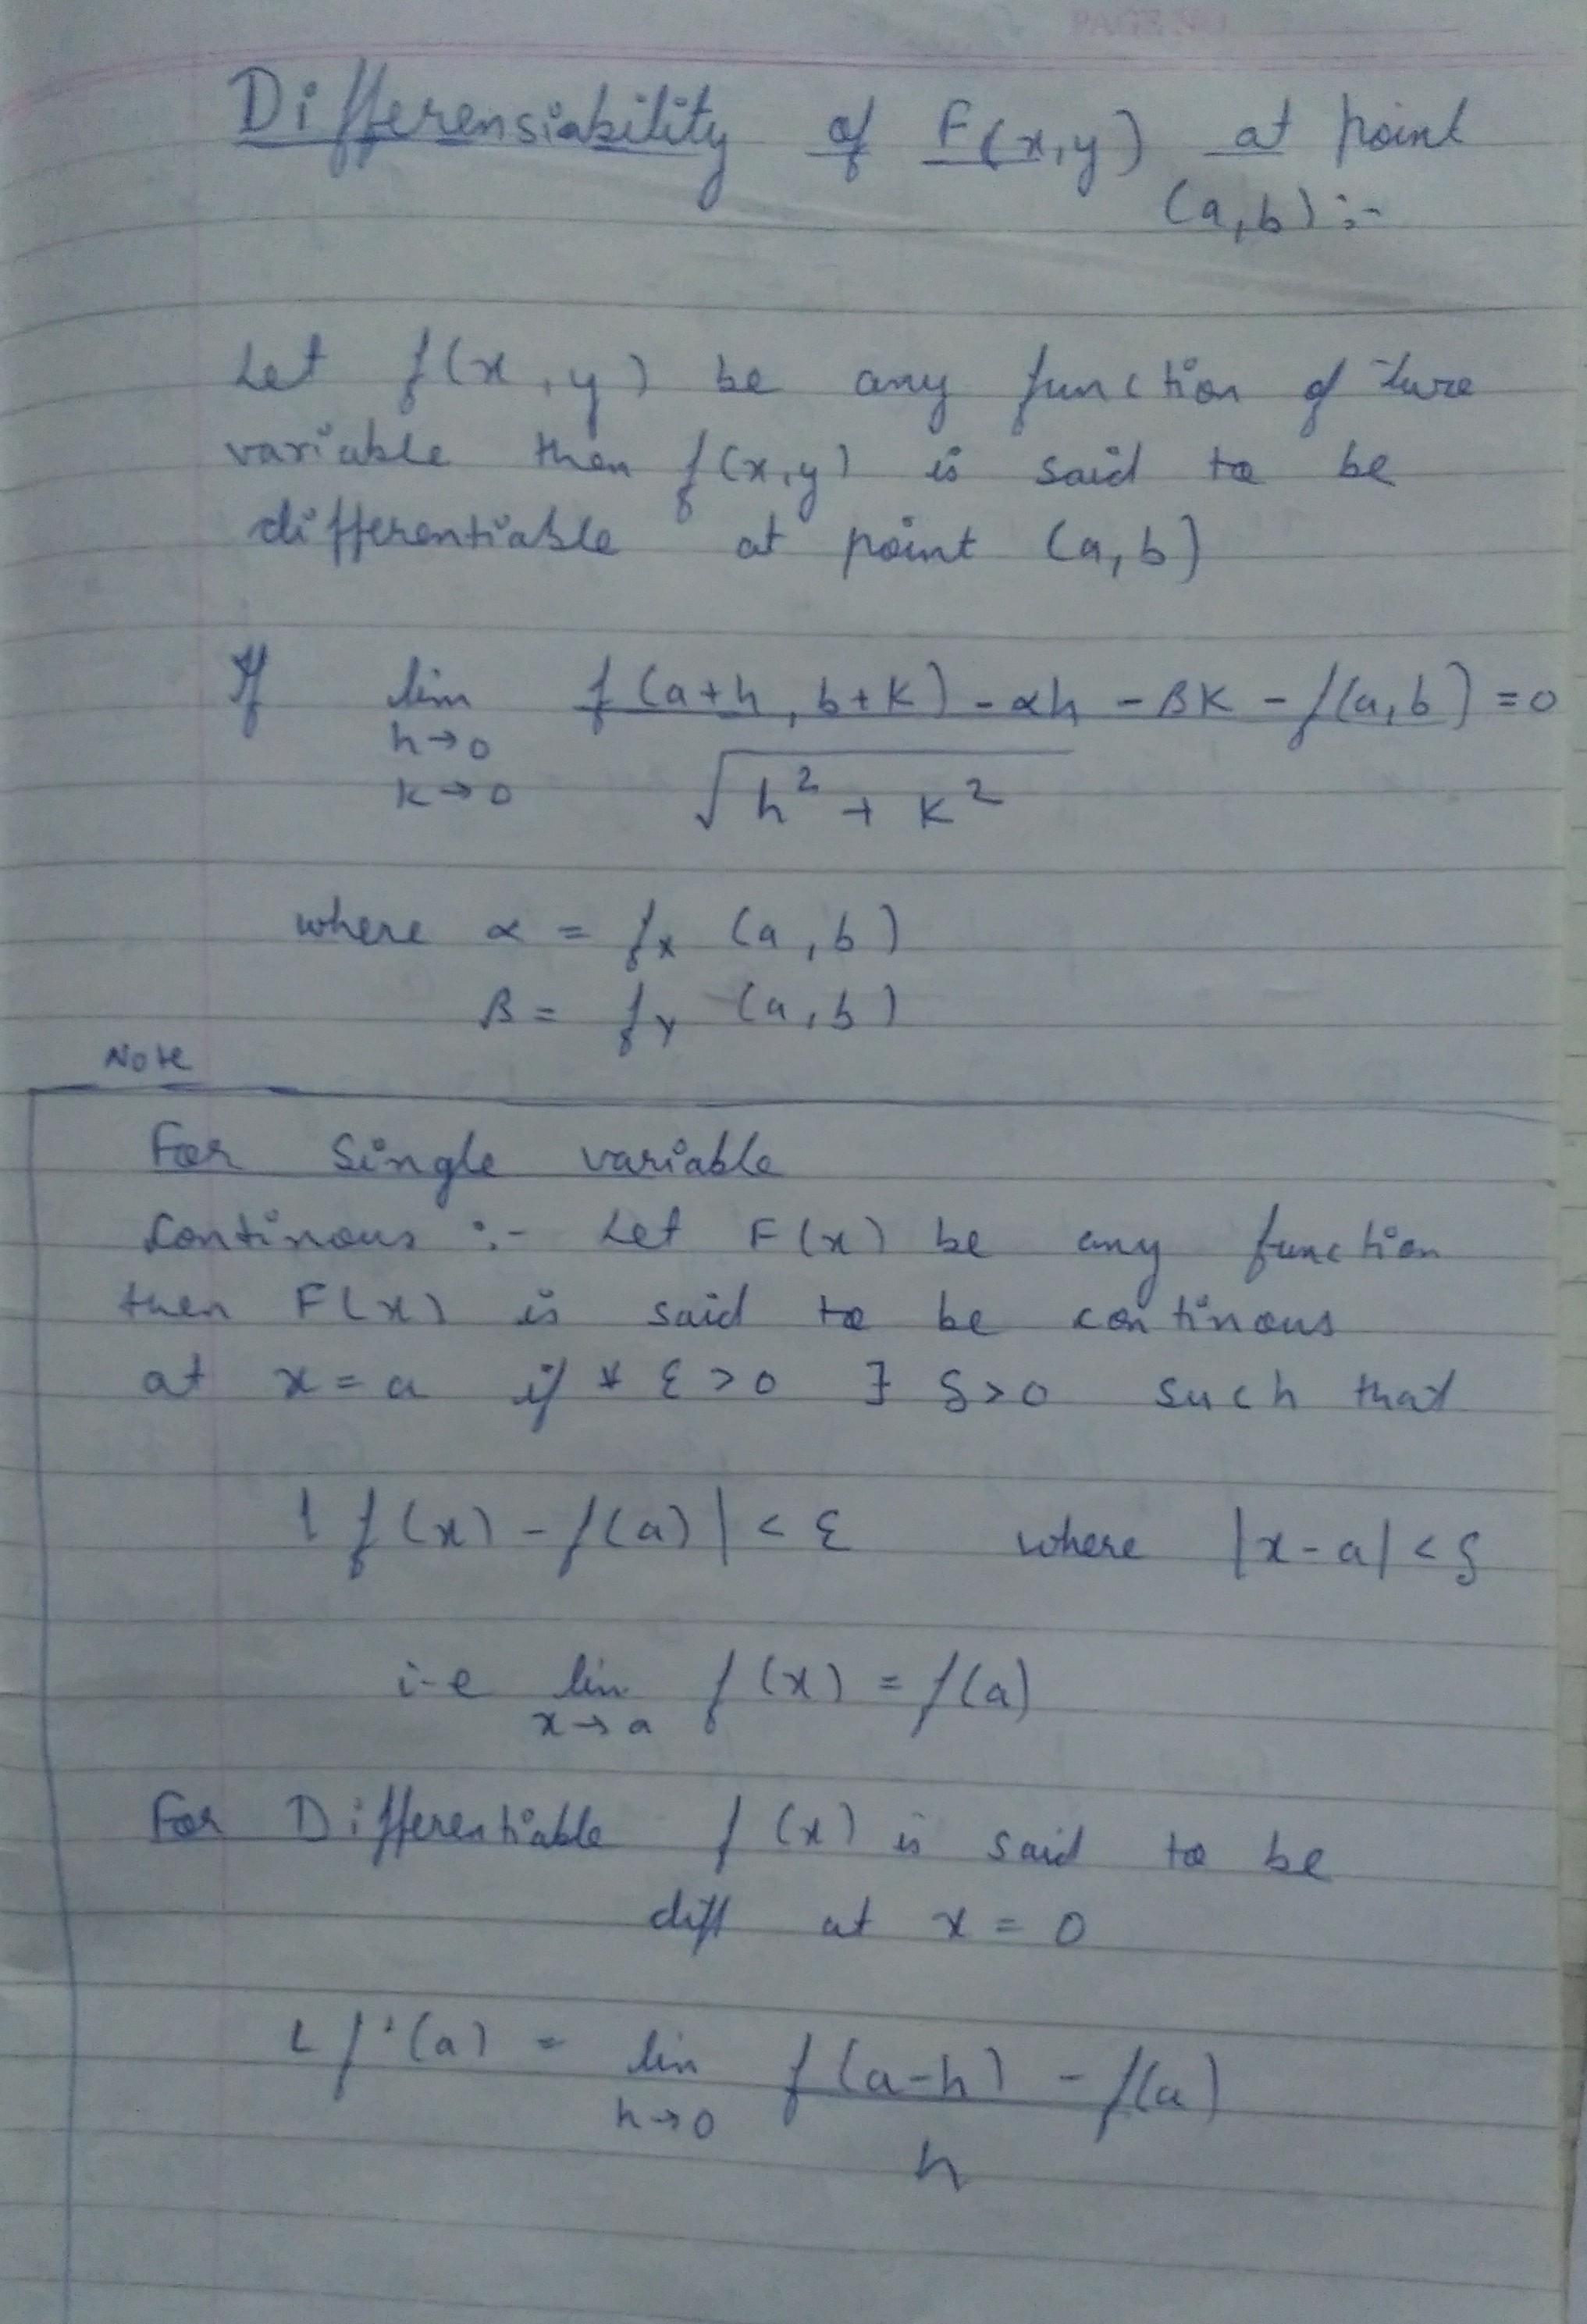 PAGE NO
Differensiability of F(x,y) at point
(a,b) :-
Let f(x,y) be any function of two
variable then f(x,y) is said to be
differentiable at point (a,b)
If lim f(a+h, b+k) - αh - βk - f(a,b) = 0
h→0
k→0 √h² + k²
where α = fx (a,b)
β = fy (a,b)
Note
For Single variable
Continous :- Let F(x) be any function
then F(x) is said to be continous
at x = a if ∀ ε > 0 ∃ δ > 0 such that
|f(x) - f(a)| < ε where |x - a| < δ
i-e lim f(x) = f(a)
x→a
For Differentiable f(x) is said to be
diff at x = 0
L f'(a) = lim f(a-h) - f(a)
h→0 h